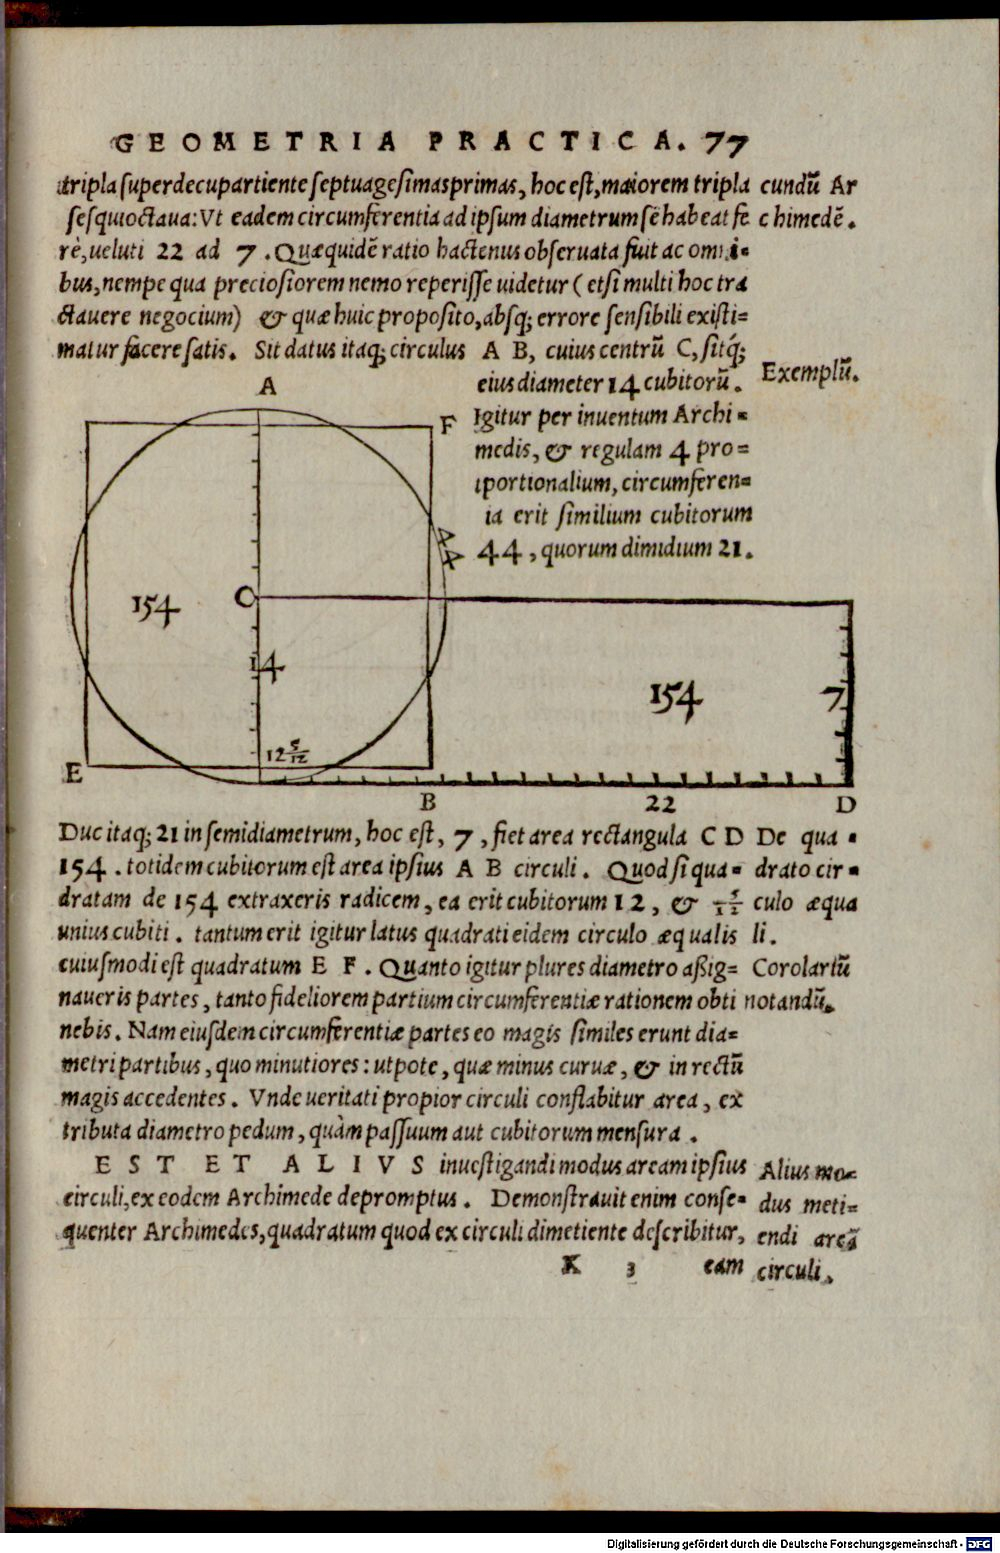 GEOMETRIA PRACTICA. 77
tripla superdecupartiente septuagesimasprimas, hoc est, maiorem tripla
sesquioctaua: Vt eadem circumferentia ad ipsum diametrum sē habeat fe
rè, ueluti 22 ad 7. Quæ quidē ratio hactenus obseruata fuit ac omni=
bus, nempe qua preciosiorem nemo reperisse uidetur (etsi multi hoc tra
ctauere negocium) & quæ huic proposito, absq; errore sensibili existi=
matur facere satis. Sit datus itaq; circulus A B, cuius centrū C, sitq́;
eius diameter 14 cubitorū.
Igitur per inuentum Archi=
medis, & regulam 4 pro=
portionalium, circumferen=
ia erit similium cubitorum
44, quorum dimidium 21.
cundū Ar
chimedē.
Exemplū.
A
F
44
154
C
14
154
7
12 5/12
E
B
22
D
Duc itaq; 21 in semidiametrum, hoc est, 7, fiet area rectangula C D
154. totidem cubitorum est area ipsius A B circuli. Quod si qua=
dratam de 154 extraxeris radicem, ea erit cubitorum 12, & 5/12
unius cubiti. tantum erit igitur latus quadrati eidem circulo æqualis
cuiusmodi est quadratum E F. Quanto igitur plures diametro aßig=
naueris partes, tanto fideliorem partium circumferentiæ rationem obti
nebis. Nam eiusdem circumferentiæ partes eo magis similes erunt dia=
metri partibus, quo minutiores: utpote, quæ minus curuæ, & in rectū
magis accedentes. Vnde ueritati propior circuli constabitur area, ex
tributa diametro pedum, quàm passuum aut cubitorum mensura.
De qua=
drato cir=
culo æqua
li.
Corolariū
notandū.
EST ET ALIVS inuestigandi modus aream ipsius
circuli, ex eodem Archimede depromptus. Demonstrauit enim conse=
quenter Archimedes, quadratum quod ex circuli dimetiente describitur,
Alius mo=
dus meti=
endi areā
circuli.
K 3 eam
Digitalisierung gefördert durch die Deutsche Forschungsgemeinschaft - DFG